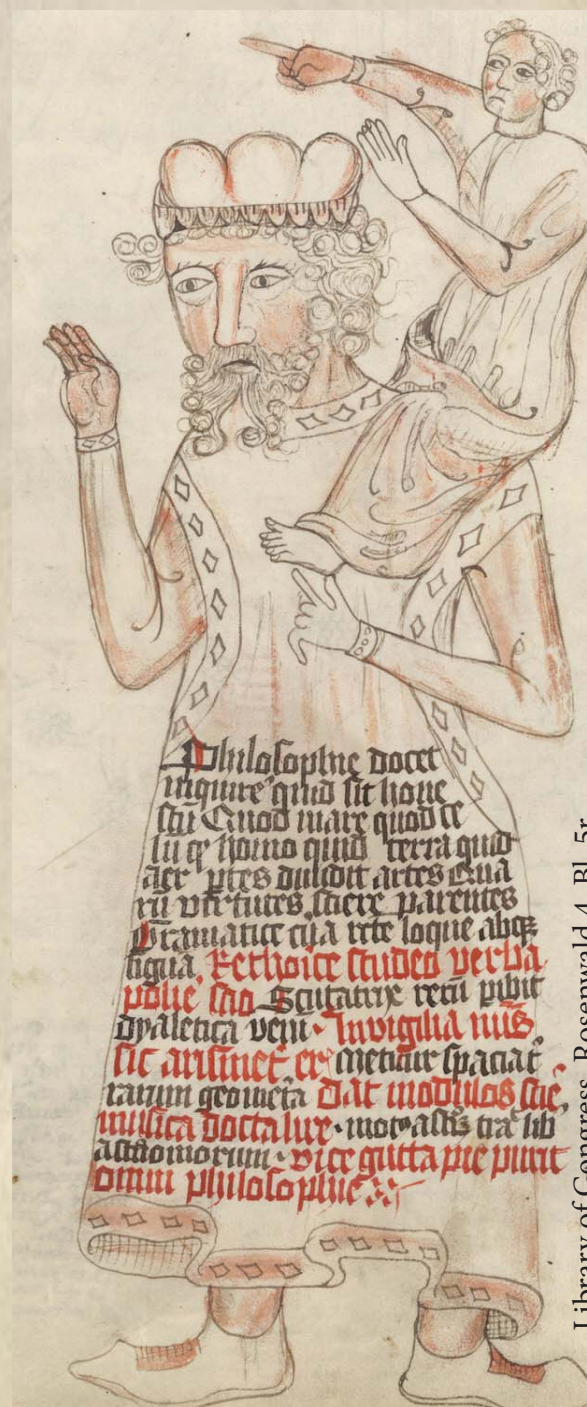 Philosophie docet
inquire quid sit hone
stu Quod mare quod ce
lu qz homo quid terra quid
aer ptes diuidit artes Qua
ru virtutes sciere parentes
Gramatice cua rete loque absqz
ligua Rethorice studeo verba
polie Scutatrix reru pibit
dyaletica veru Invigilia
sic arismet metiuir spaciat
rarum geometa Dat modulos
musica docta luxe mot tra lib
astromorum vice gutta pie piurit
omni philosophie
Library of Congress, Rosenwald 4, Bl. 5r